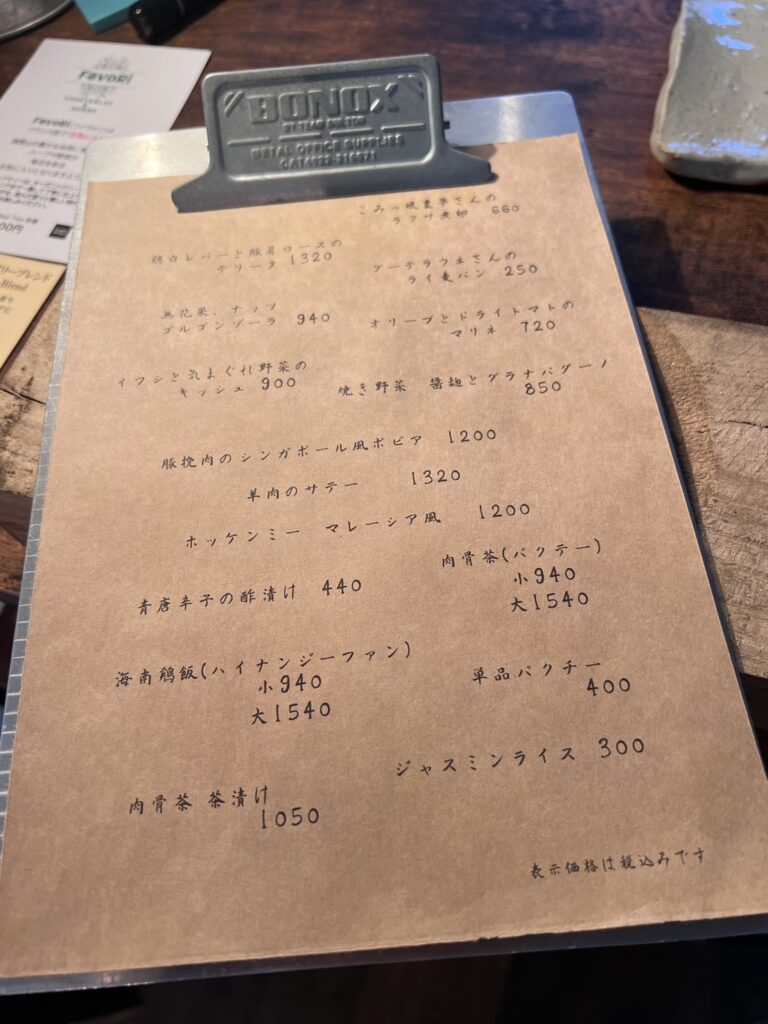 BONOX
METAL OFFICE SUPPLIES
FavoRi
こみっ
農夢さんの
660
鶏白レバーと豚肩ロースの
テリーヌ 1320
ターテラウネさんの
ライ麦パン 250
無花果、ナッツ
ゴルゴンゾーラ 940
オリーブとドライトマトの
マリネ 720
イワシと気まぐれ野菜の
キッシュ 900
焼き野菜 醤麹とグラナパダーノ
850
豚挽肉のシンガポール風ポピア 1200
羊肉のサテー 1320
ホッケンミー マレーシア風 1200
肉骨茶(バクテー)
小940
大1540
青唐辛子の酢漬け 440
海南鶏飯(ハイナンジーファン)
小940
大1540
単品パクチー
400
ジャスミンライス 300
肉骨茶 茶漬け
1050
表示価格は税込みです